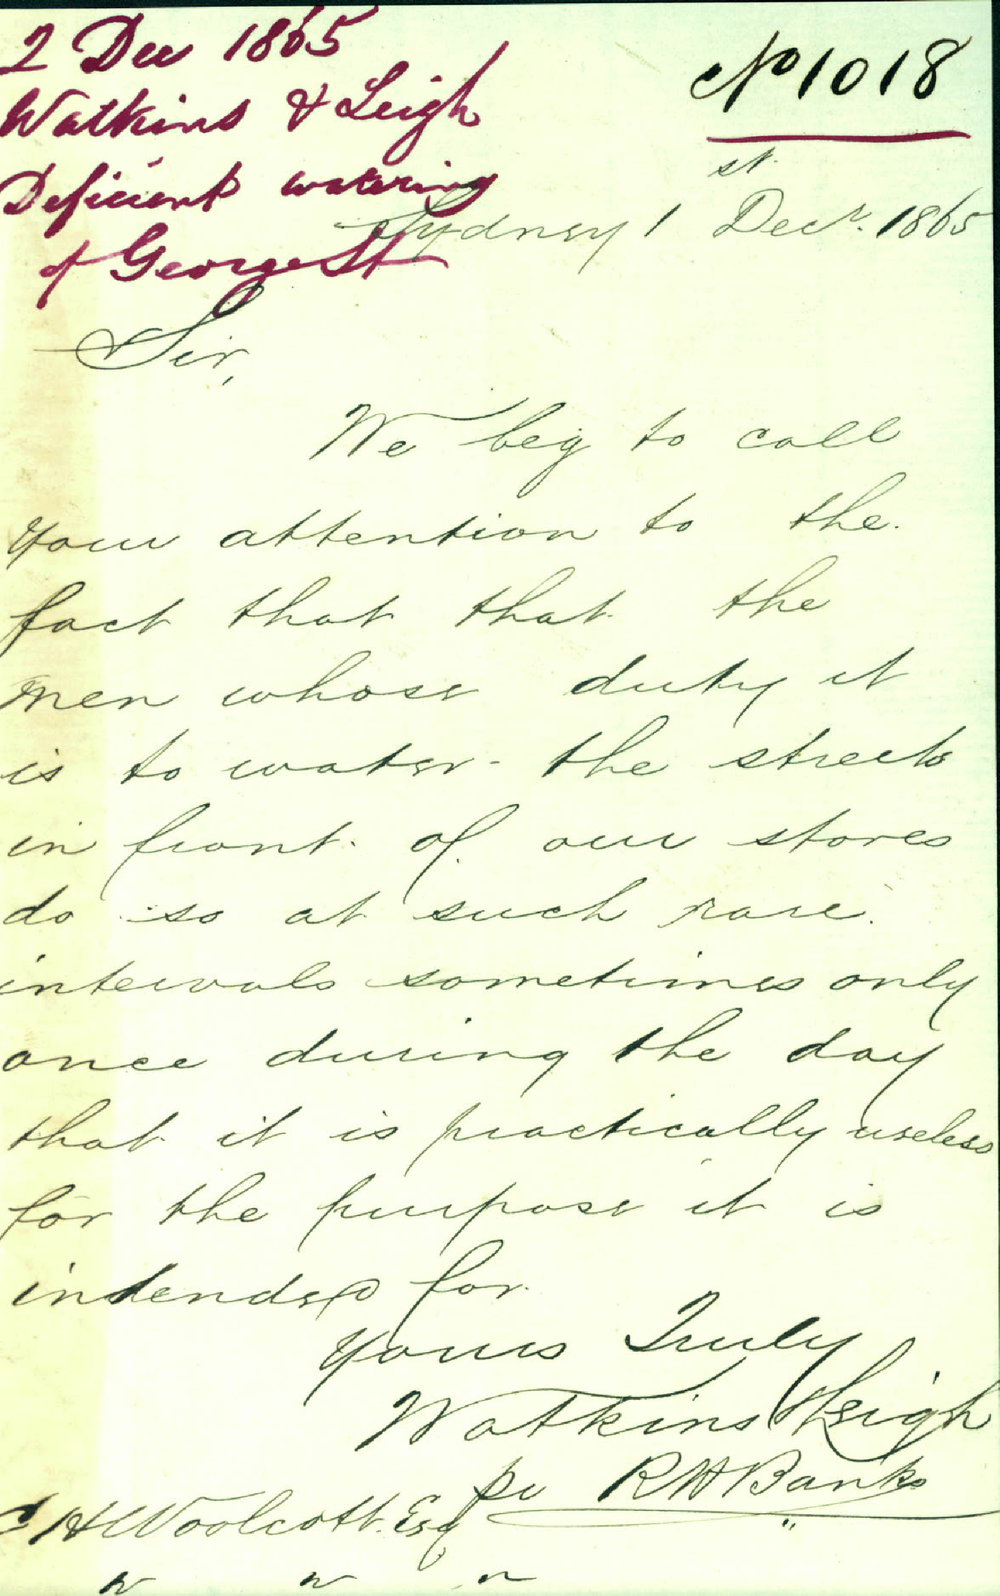 2 Dec 1865
Watkins & Leigh
Deficient watering
of George St
No 1018
Sydney 1st Decr. 1865
Sir,
We beg to call
your attention to the
fact that that the
men whose duty it
is to water the streets
in front of our stores
do so at such rare
intervals sometimes only
once during the day
that it is practically useless
for the purpose it is
intended for
Yours Truly
Watkins & Leigh
per RH Banks
C H Woolcott Esq
" " "